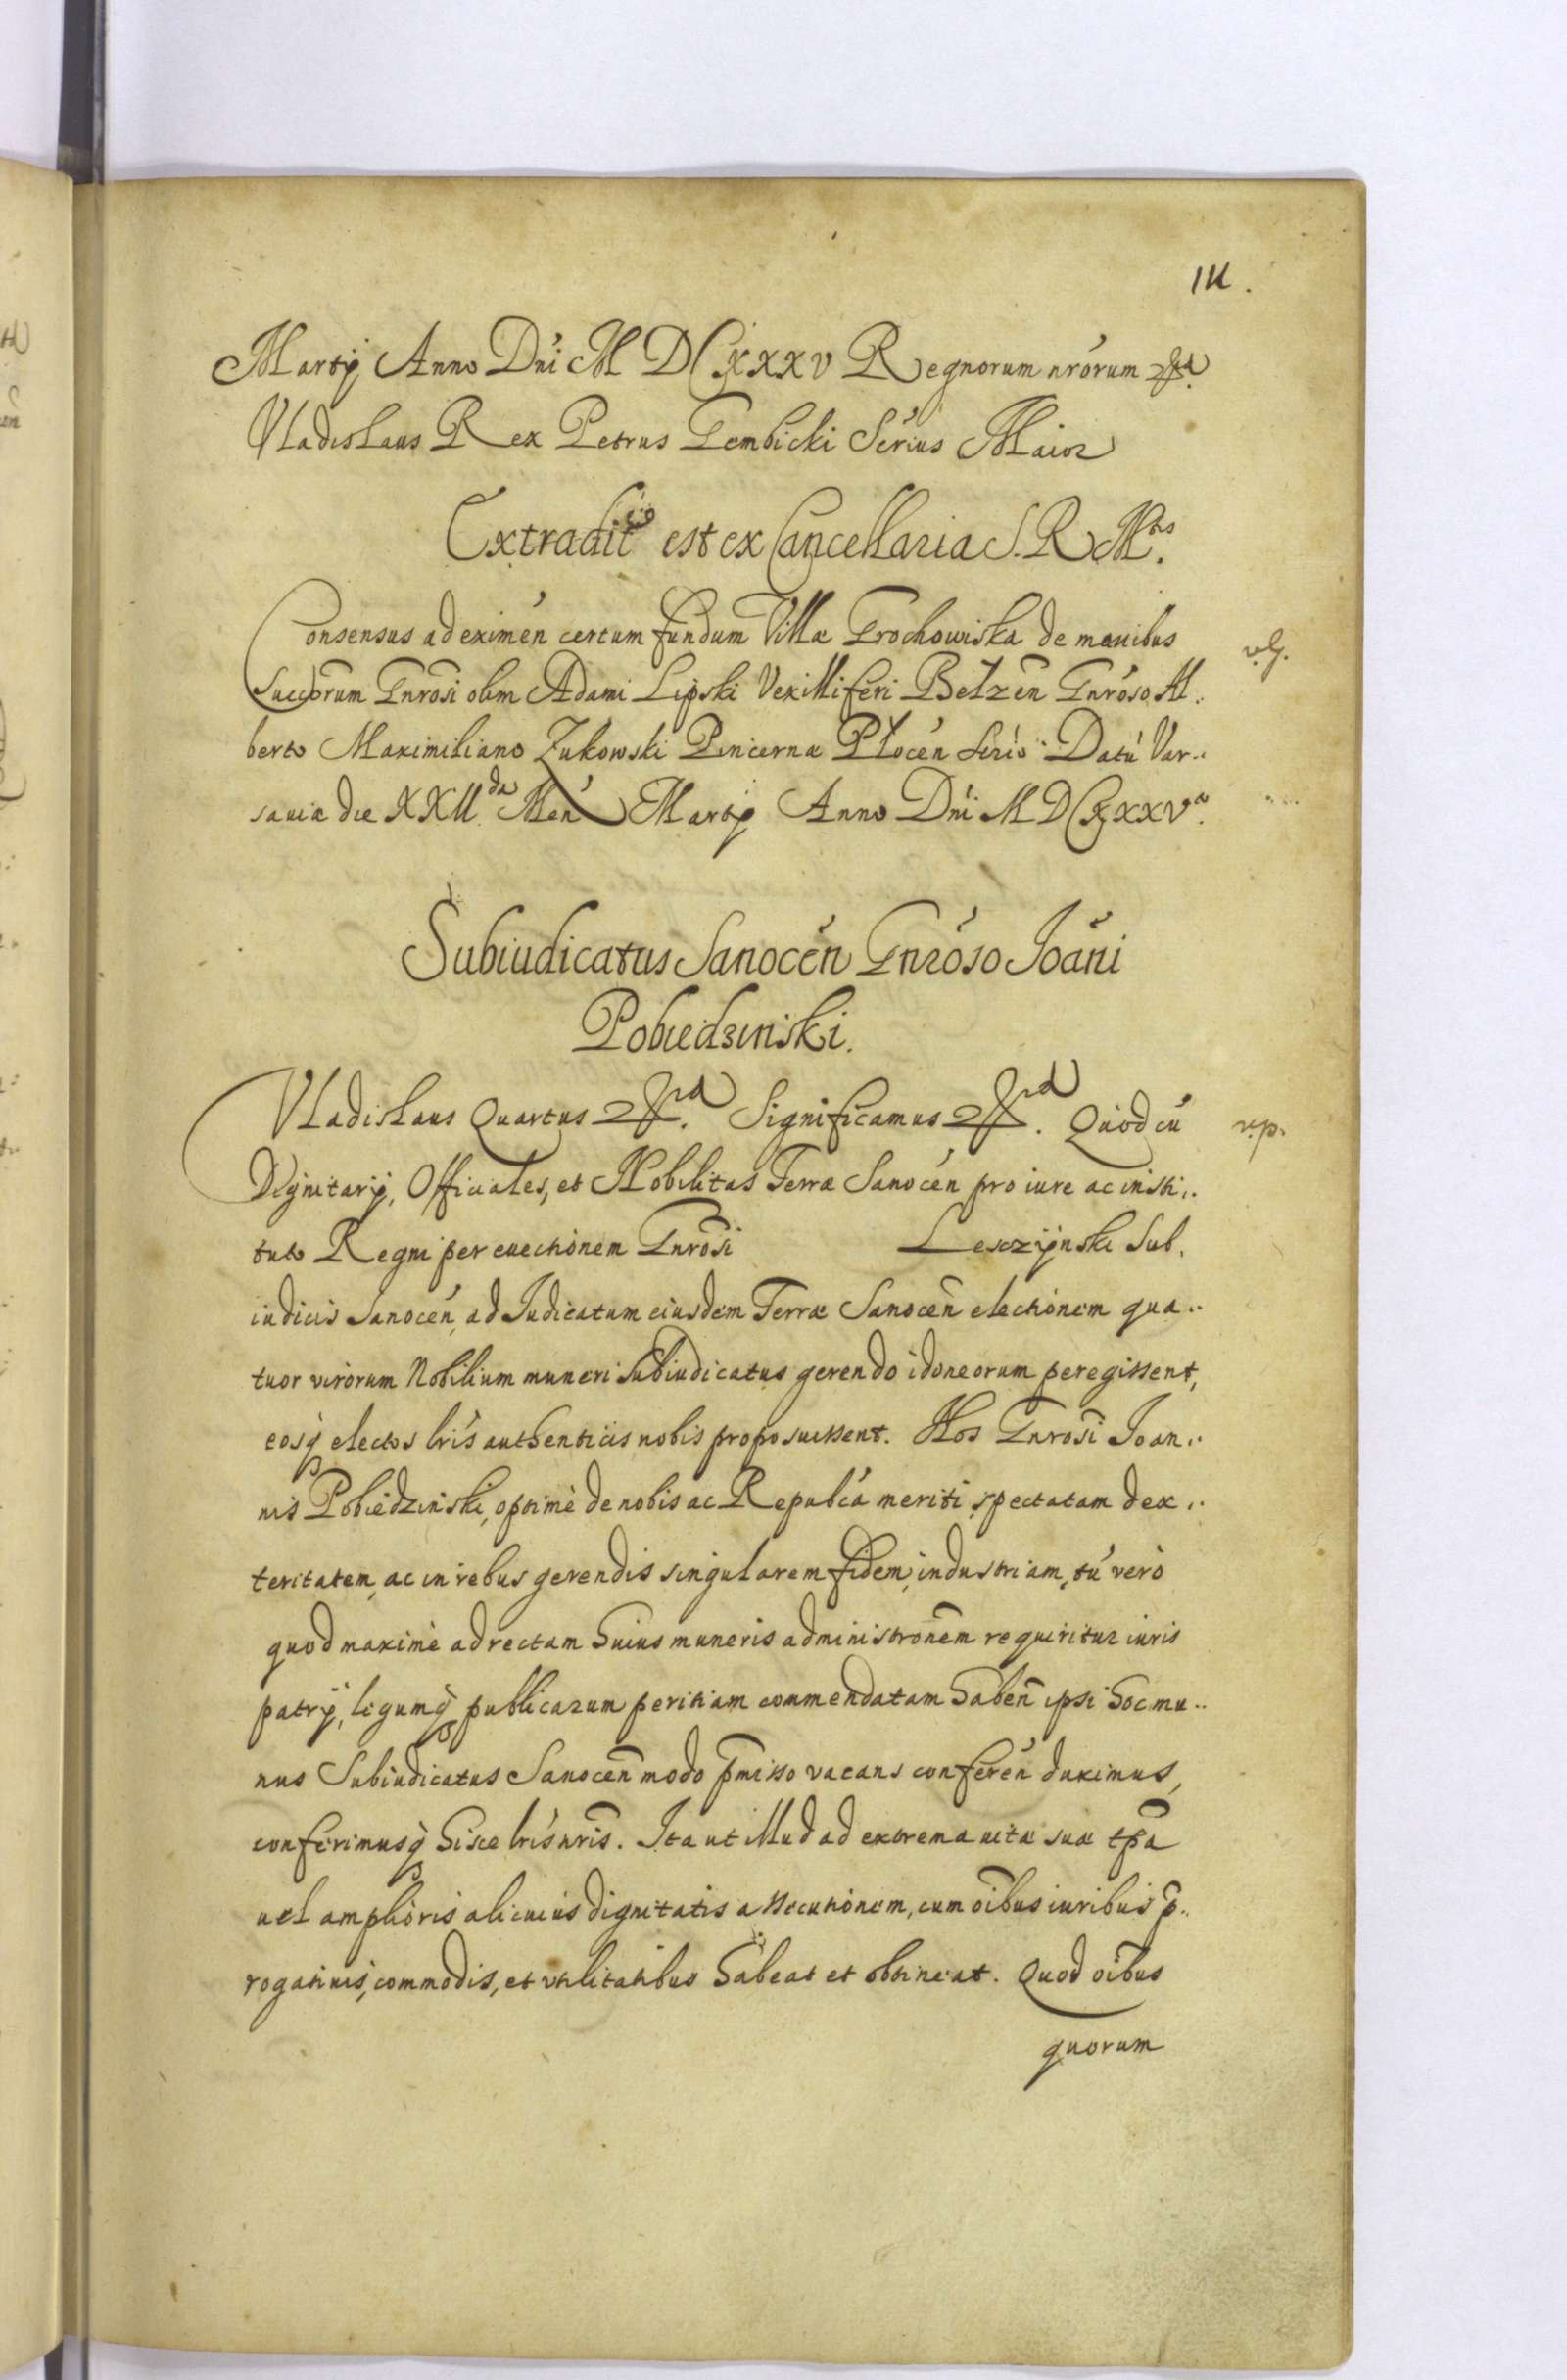 Martij Anno Dńi M D C XXXV Regnorum nrórum etc.
Vladislaus Rex Petrus Gembicki Sérius Maior
Extradit est ex Cancellaria S. R. Mtis.
Consensus ad eximén certum fundum Villæ Grochowiska de manibus
Succórum Gnrósi olim Adami Lipski Vexilliferi Belzen Gnróso Al..
berto Maximiliano Zukowski Pincernæ Płocén Sério Datú Var..
sauiæ die XXII da Men Martij Anno Dńi M D C XXXVo.
Subiudicatus Sanocén Gnróso Joáni
Pobiedzinski.
Vladislaus Quartus etc. Significamus etc. Quod cú
Dignitarij, Officiales, et Nobilitas Terræ Sanocén pro iure ac insti..
tuto Regni per euectionem Gnrosi Lesczijnski Sub.
iudicis Sanocén, ad Judicatum eiusdem Terræ Sanocen electionem qua..
tuor virorum Nobilium muneri Subiudicatus gerendo idoneorum peregissent,
eosq electos lrís authenticis nobis proposuissent. Nos Gnrosi Joan..
nis Pobiedzinski, optimè de nobis ac Republcá meriti, spectatam dex..
teritatem, ac in rebus gerendis singularem fidem, industriam, tú verò
quod maximè ad rectam huius muneris administronem requiritur iuris
patrij, legumq publicarum peritiam commendatam haben ipsi hoc mu..
nus Subiudicatus Sanocen modo pmisso vacans conferén duximus,
conferimusq hisce lrís nris. Ita ut illud ad extrema uitæ suæ tpa
uel amplioris alicuius dignitatis assecutionem, cum oibus iuribus p..
rogatiuis, commodis, et vtilitatibus habeat et obtineat. Quod oibus
quorum